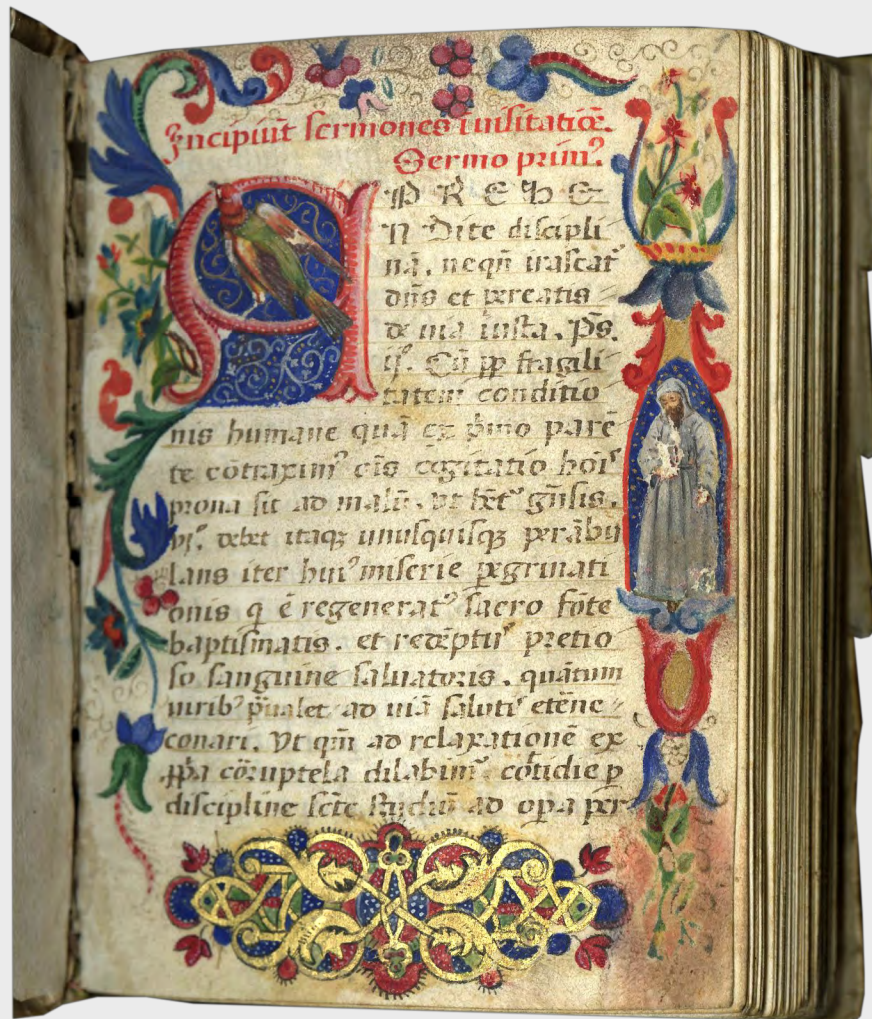 Incipiūt sermones ī uisitatiōe.
Sermo prim⁹.
A P R E H E
N Dite discipli
nā. neqn̄ irascat᷑
dn̄s et pereatis
de uia iusta. p̄s.
ij⁹. Cū ꝓp fragili
tatem conditio
nis humane quā ex p̄mo parē
te cōtraxim⁹ oīs cogitatio hoīs
prona sit ad malū. vt hēt᷑ gn̄sis.
vj⁹. debet itaqꝫ unusquisqꝫ perābu
lans iter hui⁹ miserie ꝑegrinati
onis q ē regenerat⁹ sacro fōte
baptismatis. et redēptu⁹ pretio
so sanguine saluatoris. quātum
uirib⁹ p̄ualet ad uiā saluti⁹ etērne
conari. vt qm̄ ad relaxationē ex
ꝓp̄a cōruptela dilabim᷑ cōtidie ꝑ
discipline sctē studiū ad oꝑa per